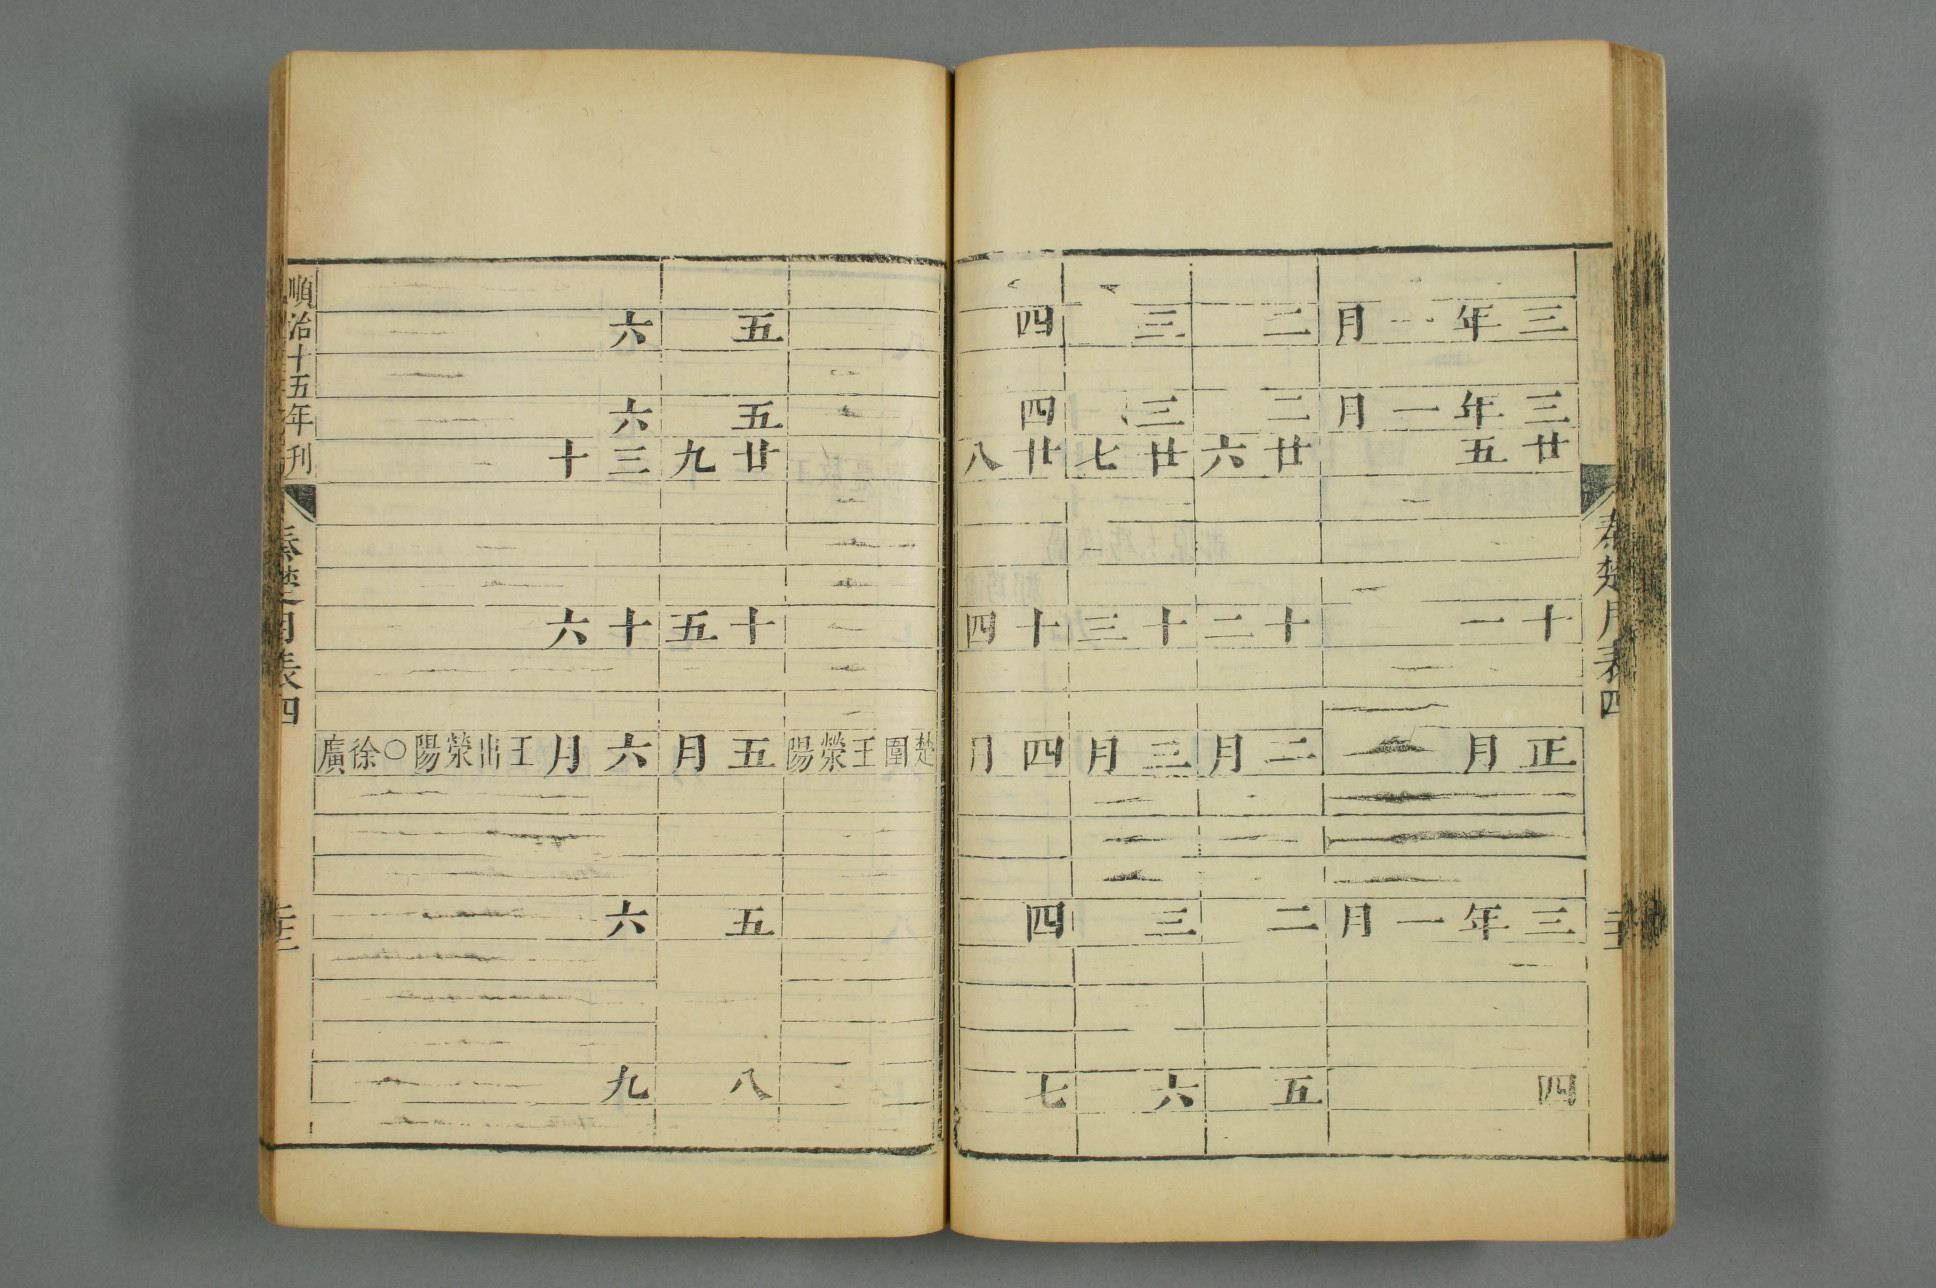 秦楚月表四
三年一月 二 三 四
三年一月 二 三 四
廿五 廿六 廿七 廿八
十一 十二 十三 十四
正月 二月 三月 四月
三年一月 二 三 四
四 五 六 七
五 六
五 六
廿九 三十
十五 十六
楚圍王滎陽 五月 六月 王出滎陽○徐廣
五 六
八 九
順治十五年刊
秦楚月表四